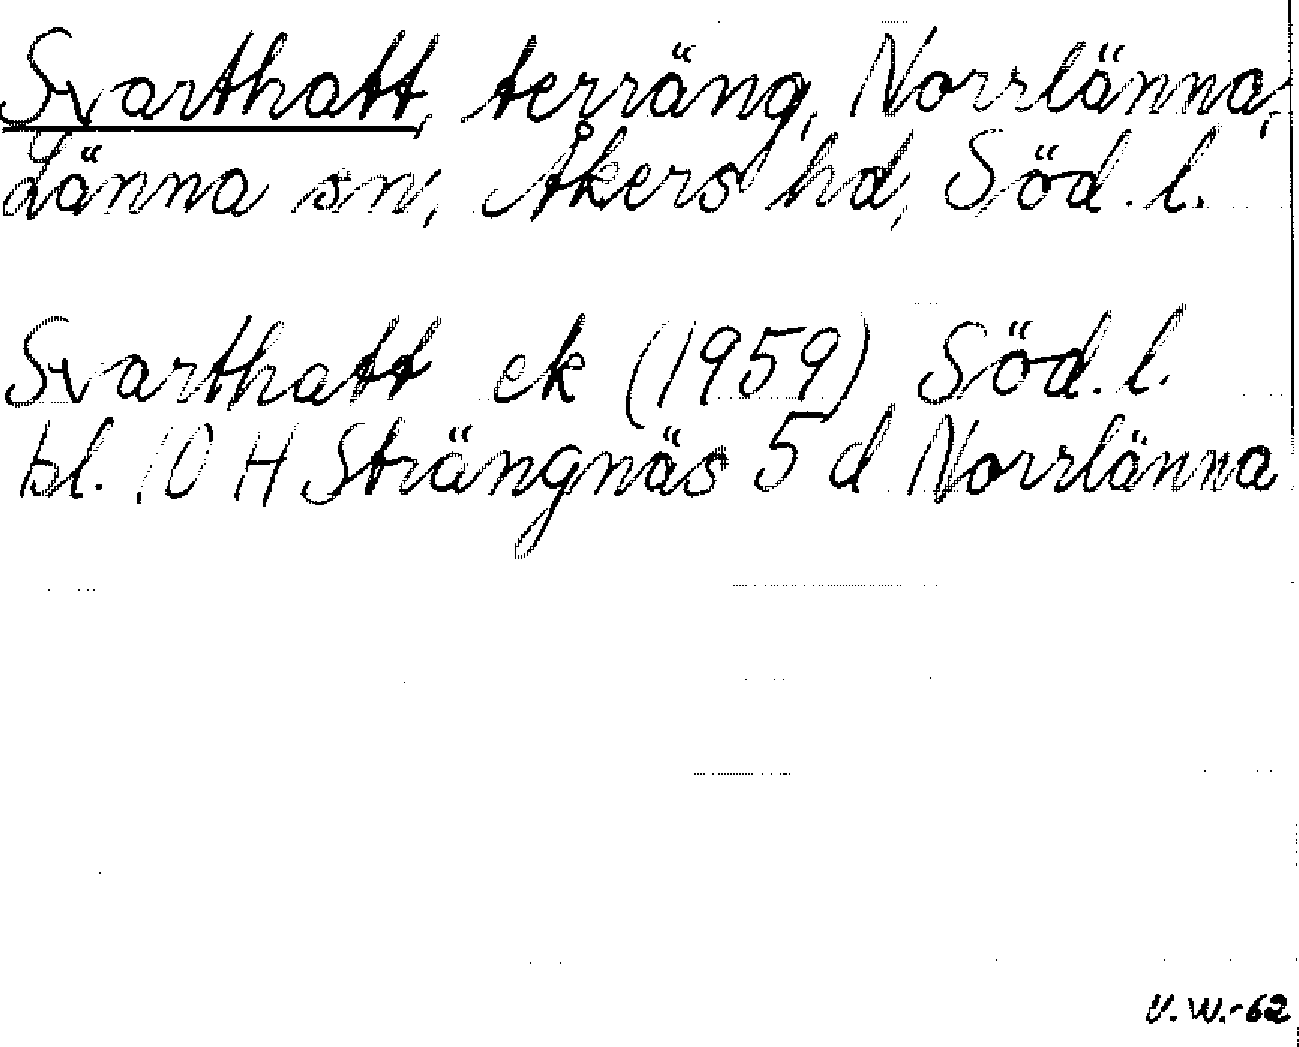 Svarthatt, terräng, Norrlänna,
Länna sn, Åkers hd, Söd. l.
Svarthatt ek (1959) Söd. l.
bl. 10 H Strängnäs 5 d Norrlänna
V. W.-62